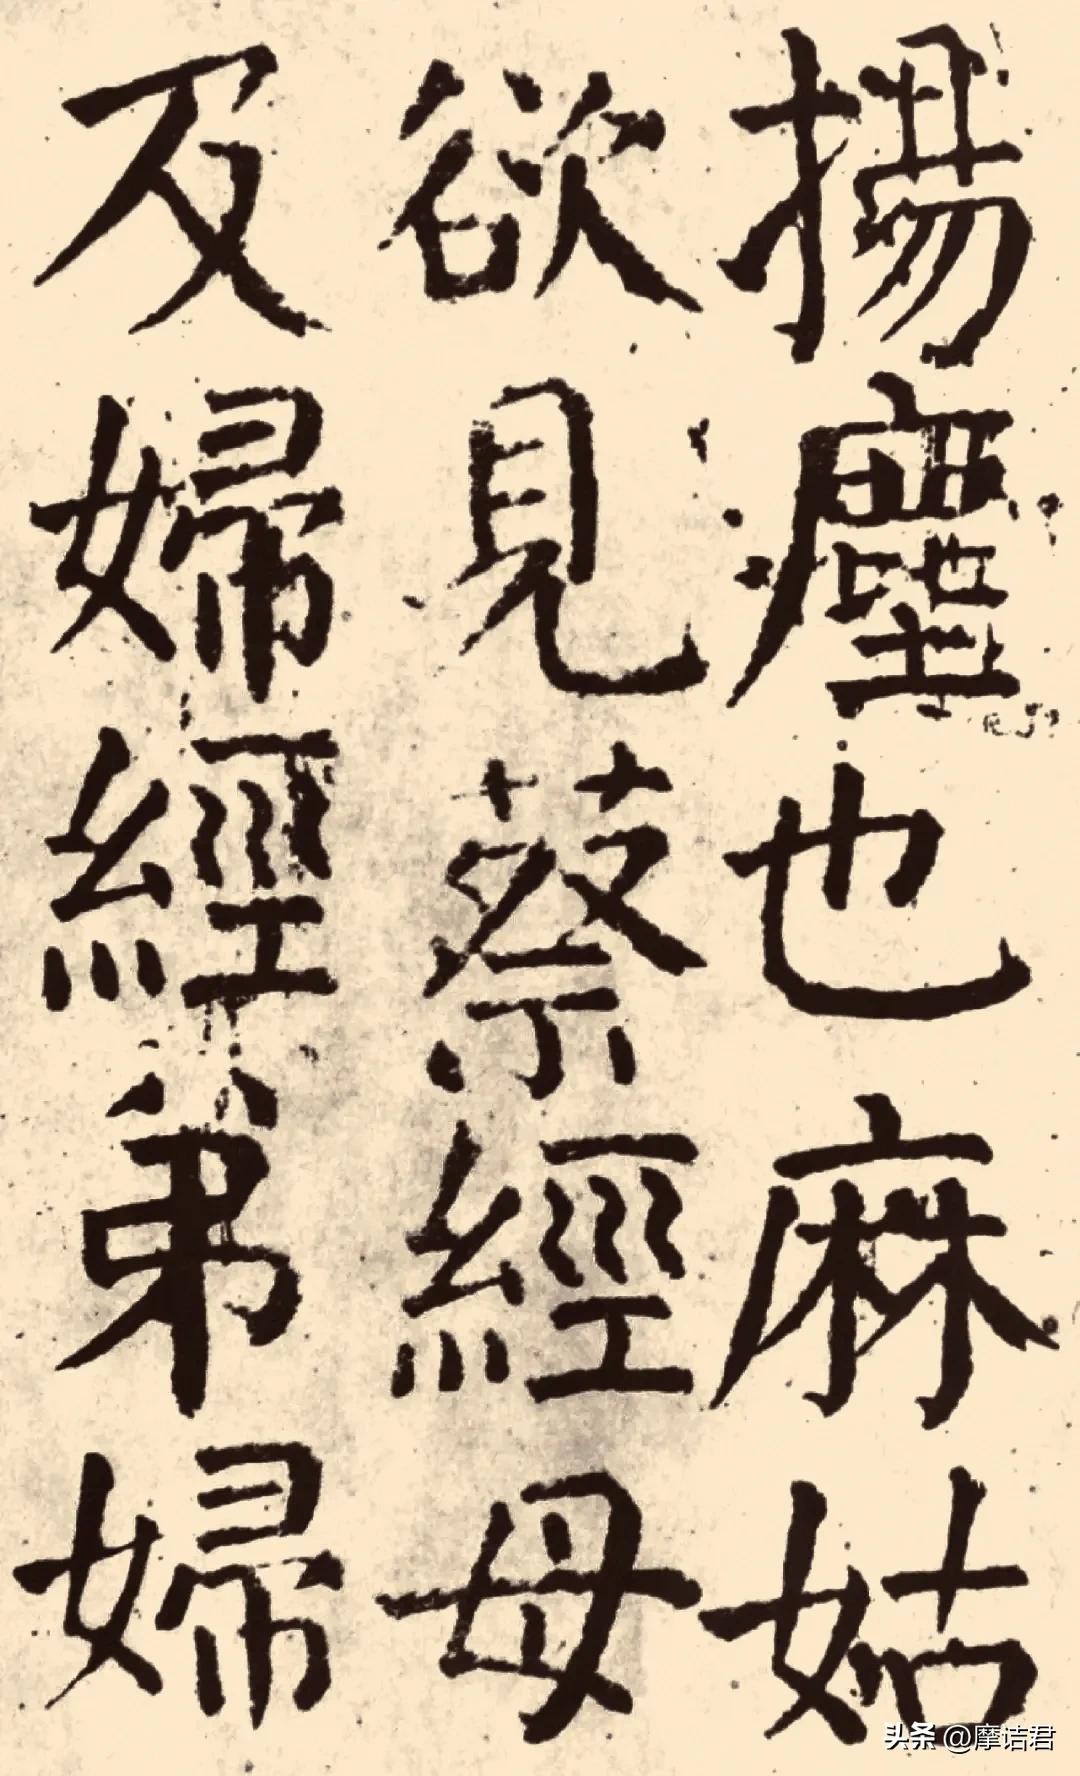 揚塵也麻姑
欲見蔡經母
及婦經弟婦
头条 @摩诘君